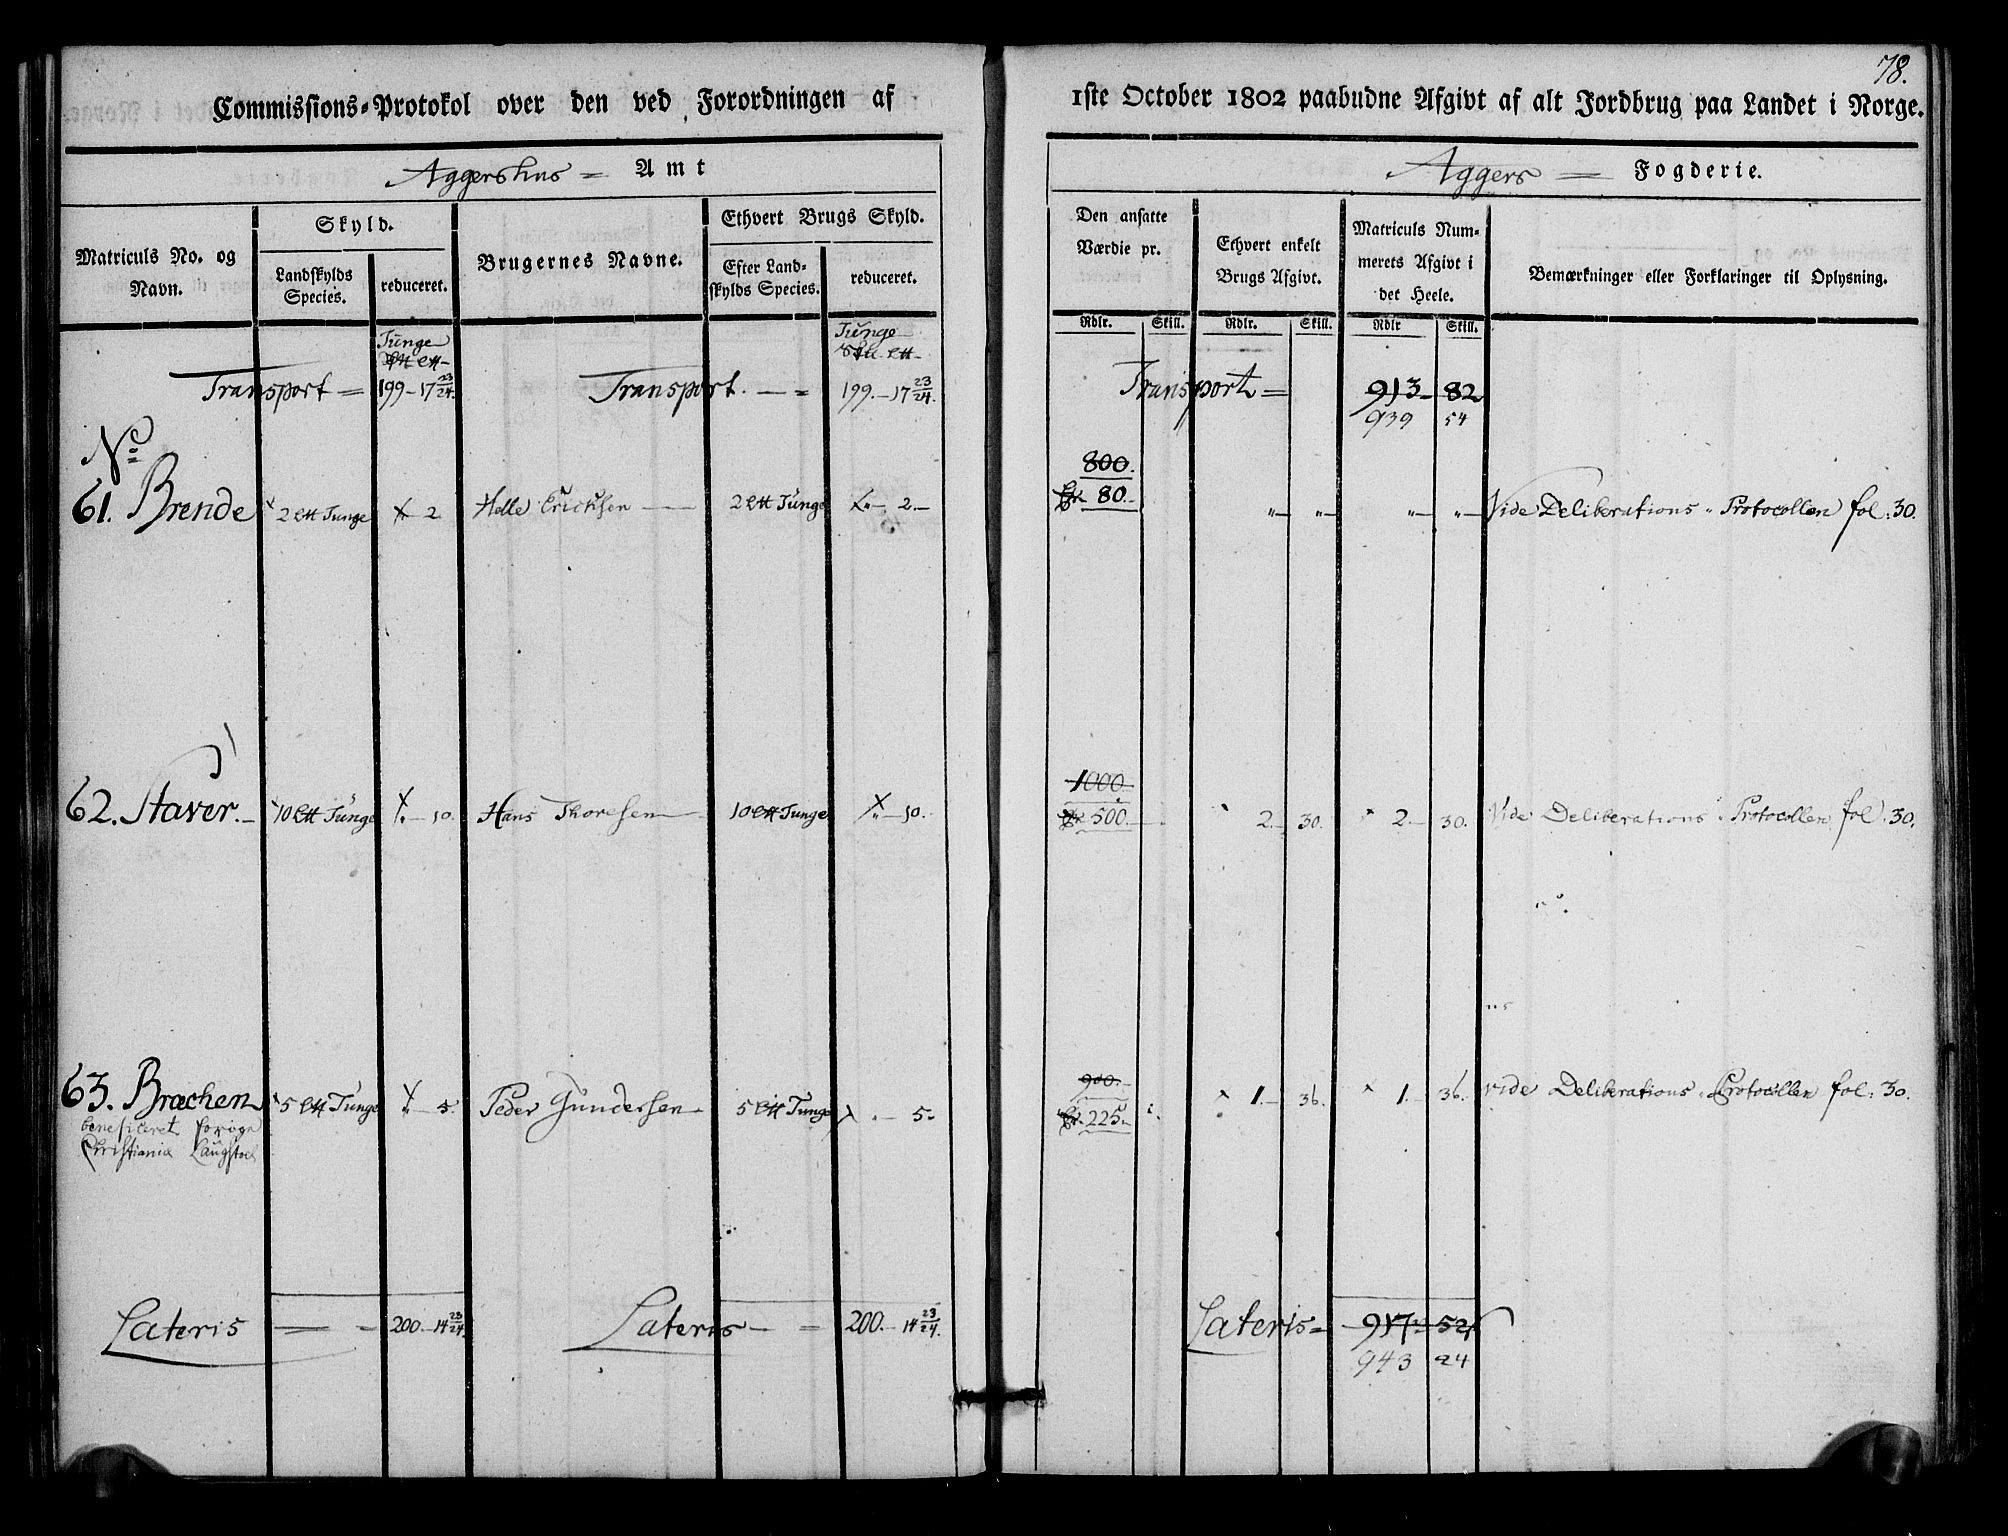 78.
Commissions-Protokol over den ved Forordningen af 1ste October 1802 paabudne Afgivt af alt Jordbrug paa Landet i Norge.
Aggershus Amt
Aggers Fogderie.
Matriculs No. og Navn.
Skyld.
Landskylds Species.
reduceret.
Brugernes Navne.
Ethvert Brugs Skyld.
Efter Landskylds Species.
reduceret.
Den ansatte Værdie pr.
Ethvert enkelt Brugs Afgivt.
Matriculs Nummerets Afgivt i det Heele.
Bemærkninger eller Forklaringer til Oplysning.
Rdlr. Skill. Rdlr. Skill. Rdlr Skill.
Tunge Tunge
Transport = 199 - 17 23/24 Transport. - = 199. - 17 23/24. Transport = 913 82
939 54
No
800.
61. Brende 2 Tunge 2 Helle Erichsen 2 Tunge 2.- 80.- „ „ „ „ Vide Deliberations Protocollen fol: 30.
1000
62. Staver.- 10 Tunge 10. Hans Thoresen 10 Tunge 10. 500. 2.- 30. 2.- 30. Vide Deliberations Protocollen fol. 30.
900.
63. Brachen 5 Tunge 5. Peder Gundersen 5 Tunge 5. 225.- 1.- 36. 1.- 36. vide Deliberations Protocollen fol: 30.
beneficeret
Christiania
Lateris 200. - 14 23/24. Lateris 200. - 14 23/24. Lateris = 917 52
943 24